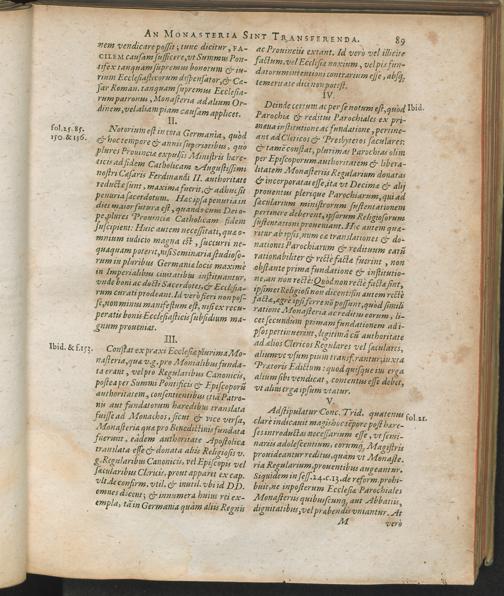 AN MONASTERIA SINT TRANSFERENDA. 89
nem vendicare possit; tunc dicitur, FA-
CILEM causam sufficere, ut Summus Pon-
tifex tanquam supremus bonorum & iu-
rium Ecclesiasticorum dispensator, & Cæ-
sar Roman. tanquam supremus Ecclesia-
rum patronus, Monasteria ad alium Or-
dinem, vel ad iam piam causam applicet.
II.
fol. 25. 85.
150. & 156.
Notorium est in tota Germania, quòd
& hoc tempore & annis superioribus, quo
plures Provincia expulsis Ministris hære-
ticis ad fidem Catholicam Augustissimi
nostri Cæsaris Ferdinandi II. authoritate
reductæ sunt, maxima fuerit, & adhuc sit
penuria Sacerdotum. Hac ipsa penuria in
dies maior futura est, quando cum Deo o-
pe, plures Provincia Catholicam fidem
suscipient. Huic autem necessitati, quæ o-
mnium iudicio magna est, succurri ne-
quaquam poterit, nisi Seminaria studioso-
rum in pluribus Germaniæ locis maximè
in Imperialibus civitatibus instituantur,
unde boni ac docti Sacerdotes, & Ecclesia-
rum curati prodeant. Id verò fieri non pos-
se, non minus manifestum est, nisi ex recu-
peratis bonis Ecclesiasticis subsidium ma-
gnum proveniat.
III.
Ibid. & f. 153.
Constat ex praxi Ecclesiæ plurima Mo-
nasteria, quæ v.g. pro Monialibus funda-
ta erant, vel pro Regularibus Canonicis,
postea per Summos Pontifices & Episcoporũ
authoritatem, consentientibus etiã Patro-
nis aut fundatorum hæredibus translata
fuisse ad Monachos, sicut & vice versa,
Monasteria quæ pro Benedictinis fundata
fuerant, eâdem authoritate Apostolica
translata esse & donata aliis Religiosis v.
g. Regularibus Canonicis, vel Episcopis vel
sæcularibus Clericis, prout apparet ex cap.
ult. de confirm. util. & inutil. ubi id DD.
omnes dicunt; & innumera huius rei ex-
empla, tã in Germania quàm aliis Regnis
ac Provinciis extant. Id verò vel illicitè
factum, vel Ecclesiæ noxium, vel piis fun-
datorum intentioni contrarium esse, absq;
temeritate dici non potest.
IV.
Deinde certum ac per se notum est, quòd
Ibid.
Parochia & reditus Parochiales ex pri-
mæva institutione ac fundatione, pertine-
ant ad Clericos & Presbyteros sæculares:
& tamē constat, plurimas Parochias olim
per Episcoporum authoritatem & libera-
litatem Monasteriis Regularium donatas
& incorporatas esse, ita ut Decimæ & alij
proventus plerique Parochiarum, qui ad
sæcularium ministrorum sustentationem
pertinere deberent, ipsorum Religiosorum
sustentationi proveniant. Hic autem quæ-
ritur ab ipsis, num eæ translationes & do-
nationes Parochiarum & redituum earũ
rationabiliter & rectè factæ fuerint, non
obstante prima fundatione & institutio-
ne, an non rectè: Quòd non rectè factæ sint,
ipsimet Religiosi non dicent: sin autem rectè
factæ, ægrè ipsi ferre nõ possunt, quòd simili
ratione Monasteria ac reditus eorum, li-
cet secundùm primam fundationem ad i-
psos pertinuerint, legitimâ cũ authoritate
ad alios Clericos Regulares vel sæculares,
aliumve usum pium transferantur, iuxta
Prætoris Edictum: quod quisque in erga
alium sibi vendicat, contentus esse debet,
ut alius erga ipsum utatur.
V.
Adstipulatur Conc. Trid. quatenus
fol. 21.
clarè indicavit magis hoc tēpore post hære-
ses introductas necessarium esse, ut semi-
nariis adolescentium, eorumq; Magistris
provideantur reditus, quàm ut Monaste-
ria Regularium, proventibus augeantur.
Siquidem in sess. 24. c. 13. de reform. prohi-
buit, ne inposterum Ecclesiæ Parochiales
Monasteriis quibuscunq; aut Abbatiis,
dignitatibus, vel præbendis uniantur. At
M verò